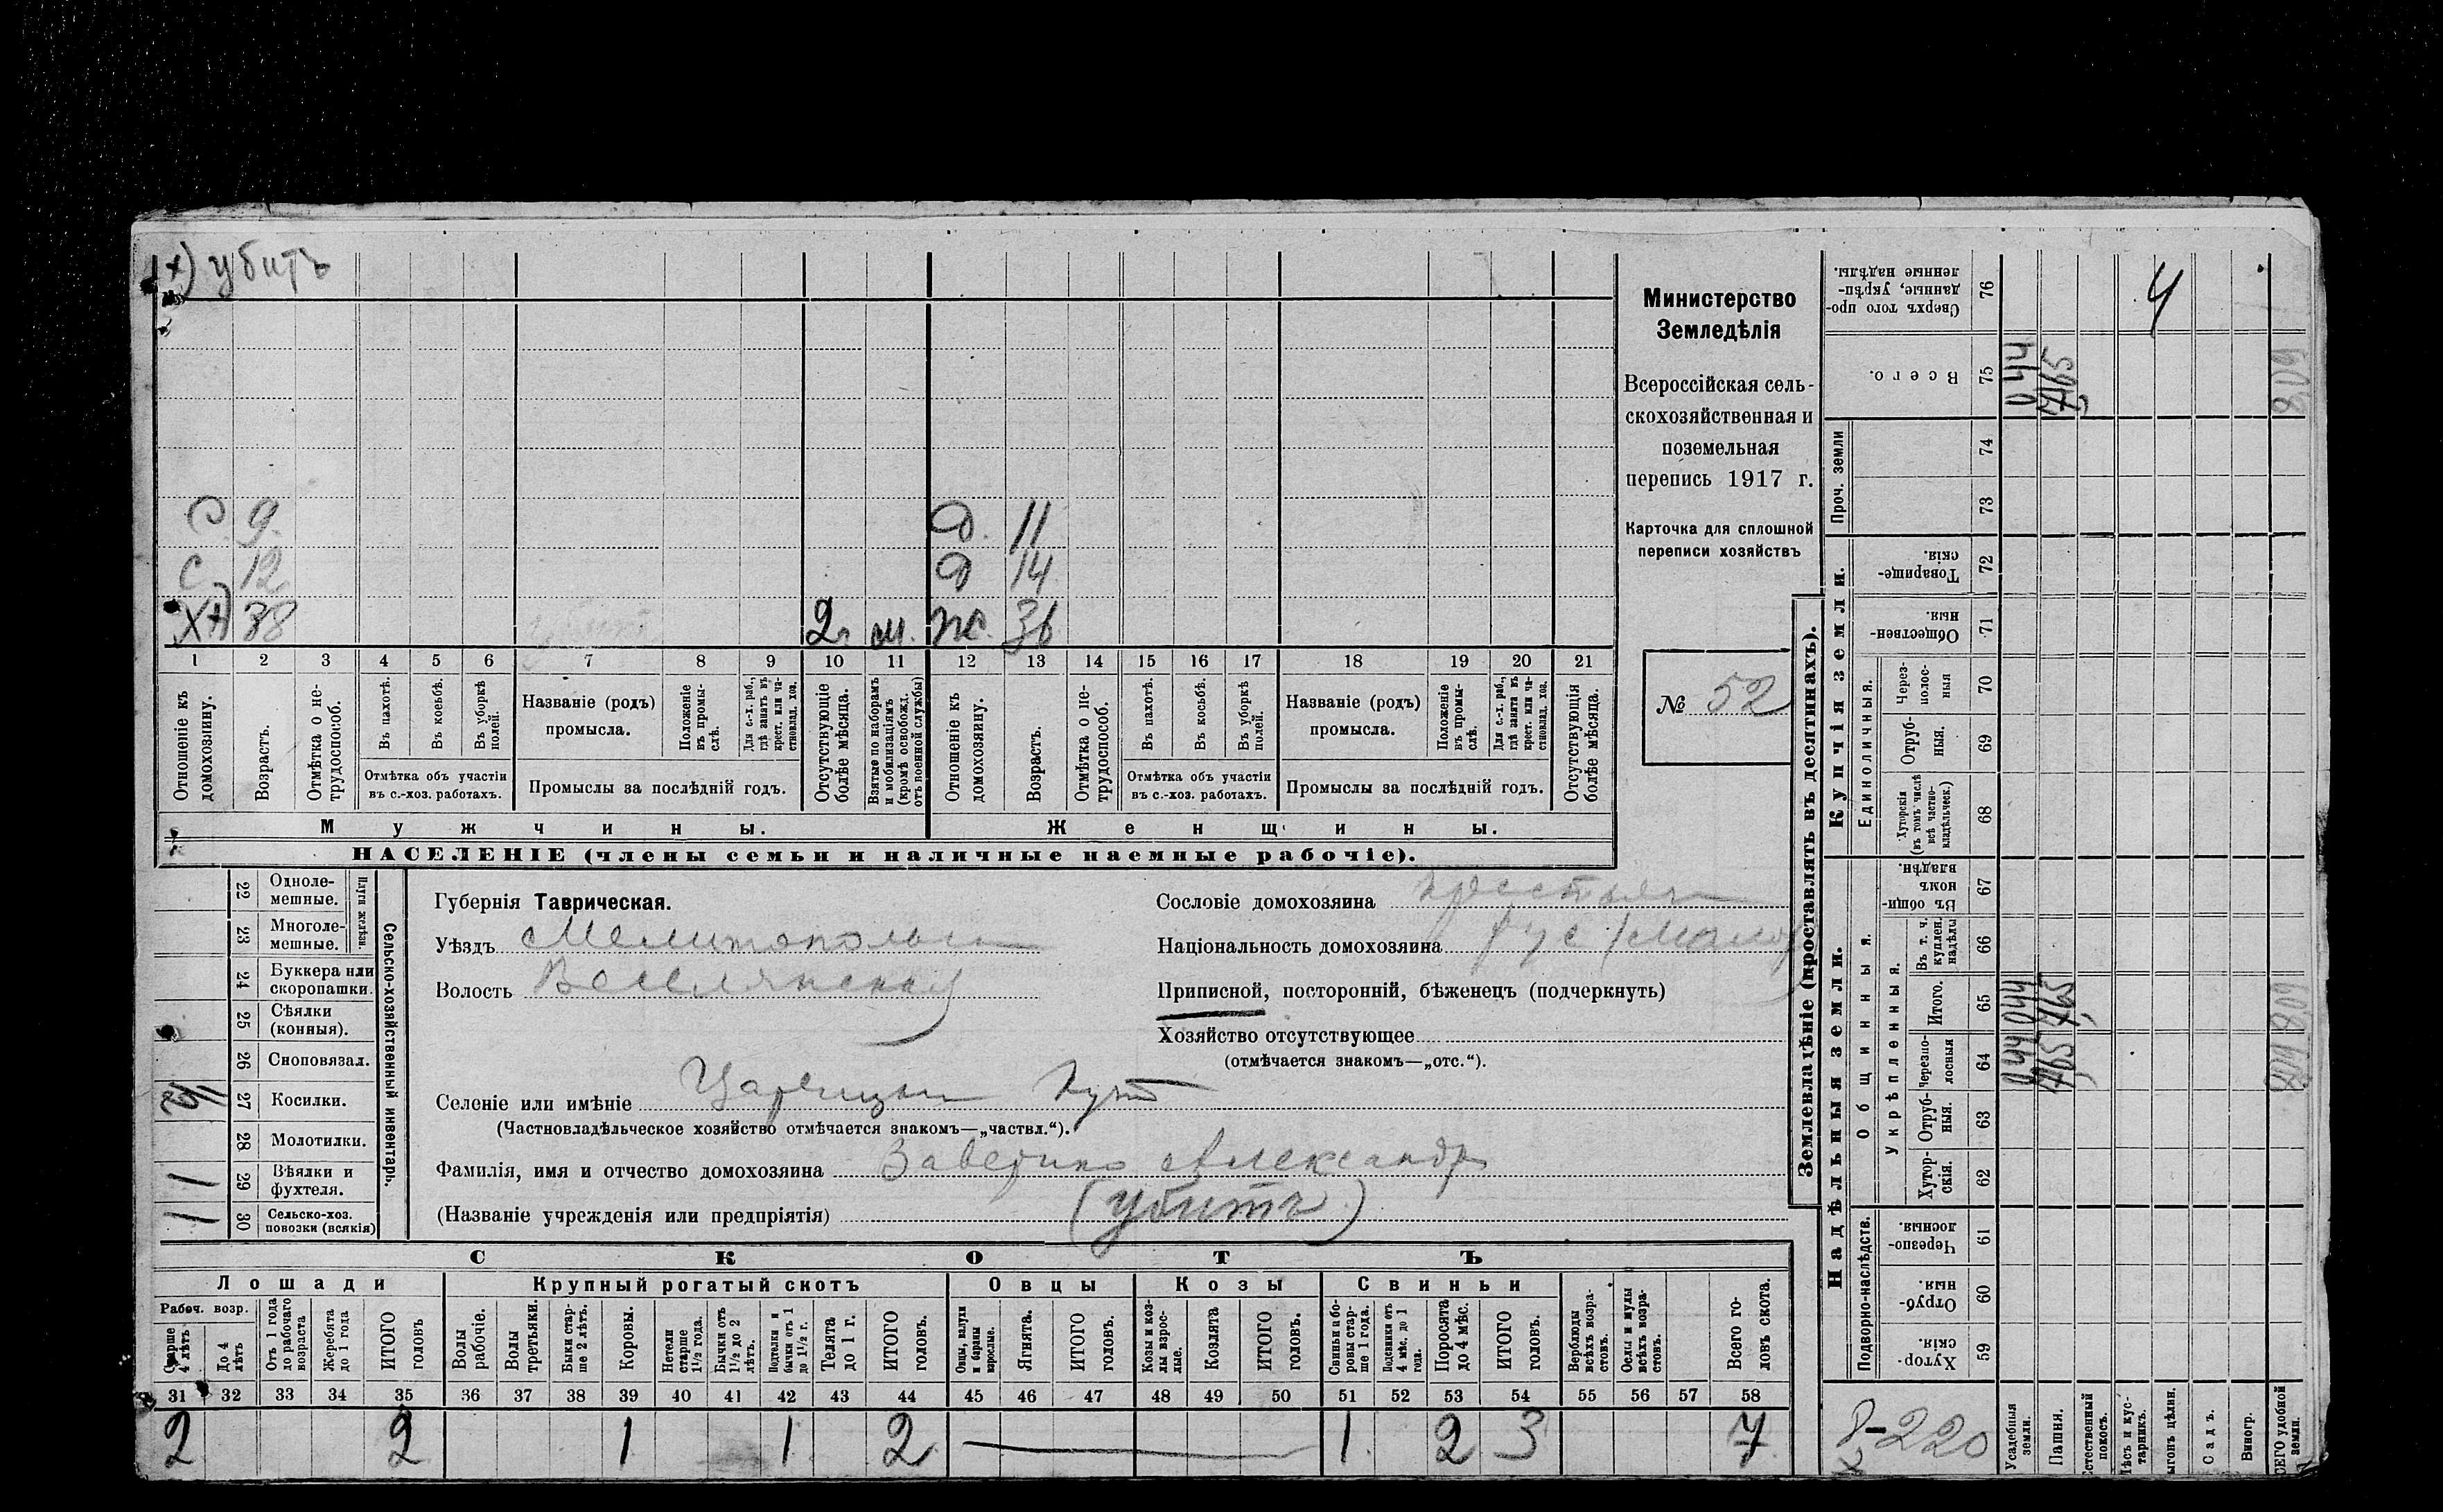 х) убитъ
с. 9. д. 11
с 12 д 14
Хх) 38 2 г. м. ж. 36
1 2 3 4 5 6 7 8 9 10 11 12 13 14 15 16 17 18 19 20 21
Отношеніе къ домохозяину.
Возрастъ.
Отмѣтка о не-трудоспособ.
Въ пахотѣ.
Въ косьбѣ.
Въ уборкѣ полей.
Отмѣтка объ участіи
въ с.-хоз. работахъ.
Названіе (родъ)
промысла.
Положеніе въ промы-слѣ.
Для с.-х. раб., гдѣ занятъ въ крест. или ча-стновлад. хоз.
Промыслы за послѣдній годъ.
Отсутствующіе болѣе мѣсяца.
Взятые по наборамъ и мобилизаціямъ (кромѣ освобожд. отъ военной службы)
Отношеніе къ домохозяину.
Возрастъ.
Отмѣтка о не-трудоспособ.
Въ пахотѣ.
Въ косьбѣ.
Въ уборкѣ полей.
Отмѣтка объ участіи
въ с.-хоз. работахъ.
Названіе (родъ)
промысла.
Положеніе въ промы-слѣ.
Для с.-х. раб., гдѣ занята въ крест. или ча-стновлад. хоз.
Промыслы за послѣдній годъ.
Отсутствующія болѣе мѣсяца.
Мужчины. Женщины.
НАСЕЛЕНІЕ (члены семьи и наличные наемные рабочіе).
Министерство
Земледѣлія
Всероссійская сель-
скохозяйственная и
поземельная
перепись 1917 г.
Карточка для сплошной
переписи хозяйствъ
№ 52
Сельско-хозяйственный инвентарь.
Плуги желѣзн.
22 Одноле-мешные.
23 Многоле-мешные.
24 Буккера или скоропашки.
25 Сѣялки (конныя).
26 Сноповязал.
27 Косилки. 1/2
28 Молотилки.
29 Вѣялки и фухтеля. 1
30 Сельско-хоз. повозки (всякія) 1
Губернія Таврическая.
Уѣздъ Мелитопольск
Волость Веселянская
Сословіе домохозяина крестьян
Національность домохозяина рус (Мало
Приписной, посторонній, бѣженецъ (подчеркнуть)
Хозяйство отсутствующее
(отмѣчается знакомъ—„отс.“).
Селеніе или имѣніе Царицын Кут
(Частновладѣльческое хозяйство отмѣчается знакомъ—„частвл.“).
Фамилія, имя и отчество домохозяина Заверико Александр
(Названіе учрежденія или предпріятія) (убитъ)
СКОТЪ
Лошади Крупный рогатый скотъ Овцы Козы Свиньи
Рабоч. возр.
Старше 4 лѣтъ
До 4 лѣтъ
Отъ 1 года до рабочаго возраста
Жеребята до 1 года
ИТОГО головъ
Волы рабочіе.
Волы третьяки.
Быки стар-ше 2 лѣтъ.
Коровы.
Нетели старше 1½ года.
Бычки отъ 1½ до 2 лѣтъ.
Подтелки и бычки отъ 1 до 1½ г.
Телята до 1 г.
ИТОГО головъ.
Овцы, валухи и бараны взрослые.
Ягнята.
ИТОГО головъ.
Козы и коз-лы взрос-лые.
Козлята
ИТОГО головъ.
Свиньи и бо-ровы стар-ше 1 года.
Подсвинки отъ 4 мѣс. до 1 года.
Поросята до 4 мѣс.
ИТОГО головъ.
Верблюды всѣхъ возра-стовъ.
Ослы и мулы всѣхъ возра-стовъ.
Всего го-ловъ скота.
31 32 33 34 35 36 37 38 39 40 41 42 43 44 45 46 47 48 49 50 51 52 53 54 55 56 57 58
2 2 1 1 2 1 2 3 7
Землевладѣніе (проставлять въ десятинахъ).
Сверхъ того про-данные, укрѣп-ленные надѣлы. 76 4
Всего. 75 0,440 7,465
Проч. земли 74
73
Купчія земли.
Товарище-скія. 72
Обществен-ныя. 71
Единоличныя.
Через-полос-ныя 70
Отруб-ныя. 69
Хуторскія (въ томъ числѣ всѣ частно-владѣльческ.) 68
Надѣльныя земли.
Общинныя.
Въ общи-номъ владѣн. 67
Укрѣпленныя.
Въ т. ч. куплен. надѣлы 66
Итого. 65
Черезпо-лосныя 64
Отруб-ныя. 63
Хутор-скія. 62
Подворно-наслѣдств.
Черезпо-лосныя. 61
Отруб-ныя. 60
Хутор-скія. 59
Усадебныя земли.
Пашня.
Естественный покосъ.
Лѣсъ и кус-тарникъ.
Выгонъ цѣлин.
Садъ.
Виногр.
ВСЕГО удобной земли.
220